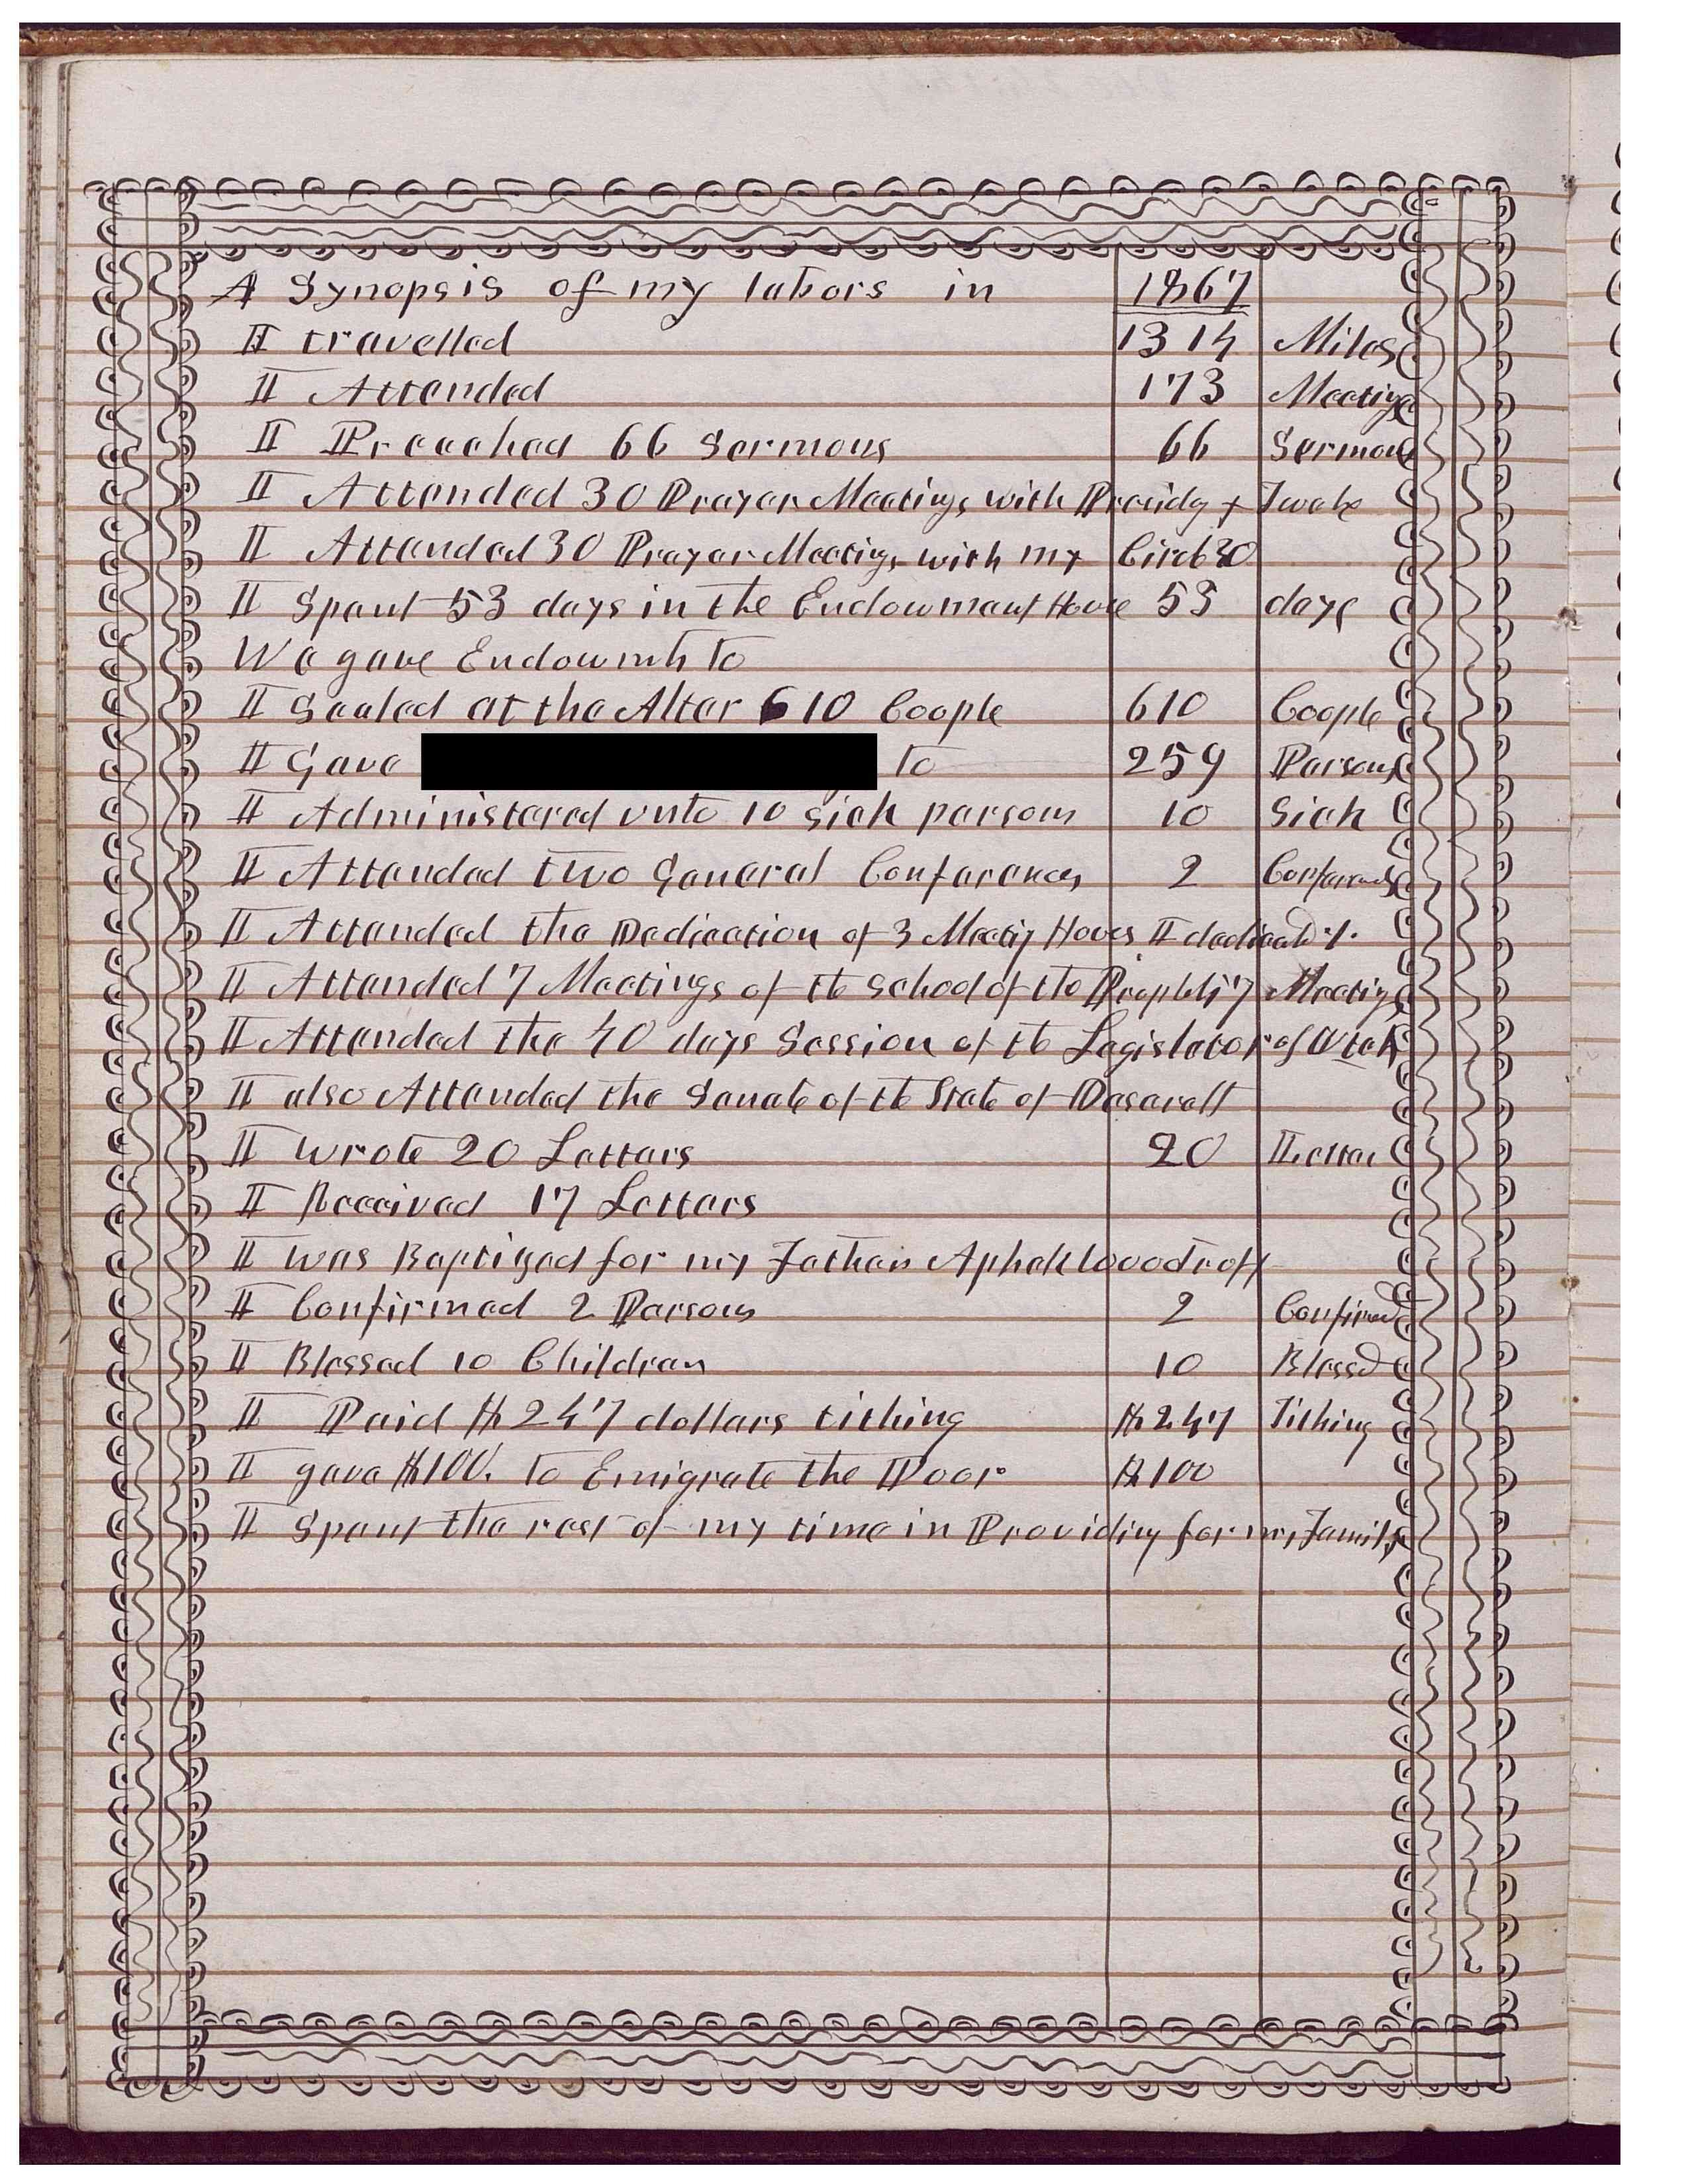 A Synopsis of my labors in 1867
I travelled 1314 Miles
I Attended 173 Meetings
I Preached 66 Sermons 66 Sermons
I Attended 30 Prayer Meetings with Presidy & Twelve
I Attended 30 Prayer Meetings with my Circle 30
I Spent 53 days in the Endowment House 53 days
We gave Endowmts to
I Sealed at the Alter 610 Coople 610 Coople
I Gave to 259 Persons
I Administered unto 10 Sick persons 10 Sick
I Attended two General Conferences 2 Conferences
I Attended the Dedication of 3 Meetig Houses I dedicatd 1.
I Attended 7 Meetings of the School of the Prophets 7 Meetings
I Attended the 40 days Session of the Legislator of Utah
I also Attended the Senate of the State of Deserett
I wrote 20 Letters 20 Letter
I Received 17 Letters
I was Baptized for my Father Aphek Woodruff
I Confirmed 2 Persons 2 Confirmed
I Blessed 10 Children 10 Blessd
I Paid $247 dollars tithing $247 Tithing
I gave $100. to Emigrate the Poor $100
I spent the rest of my time in Providing for my Family